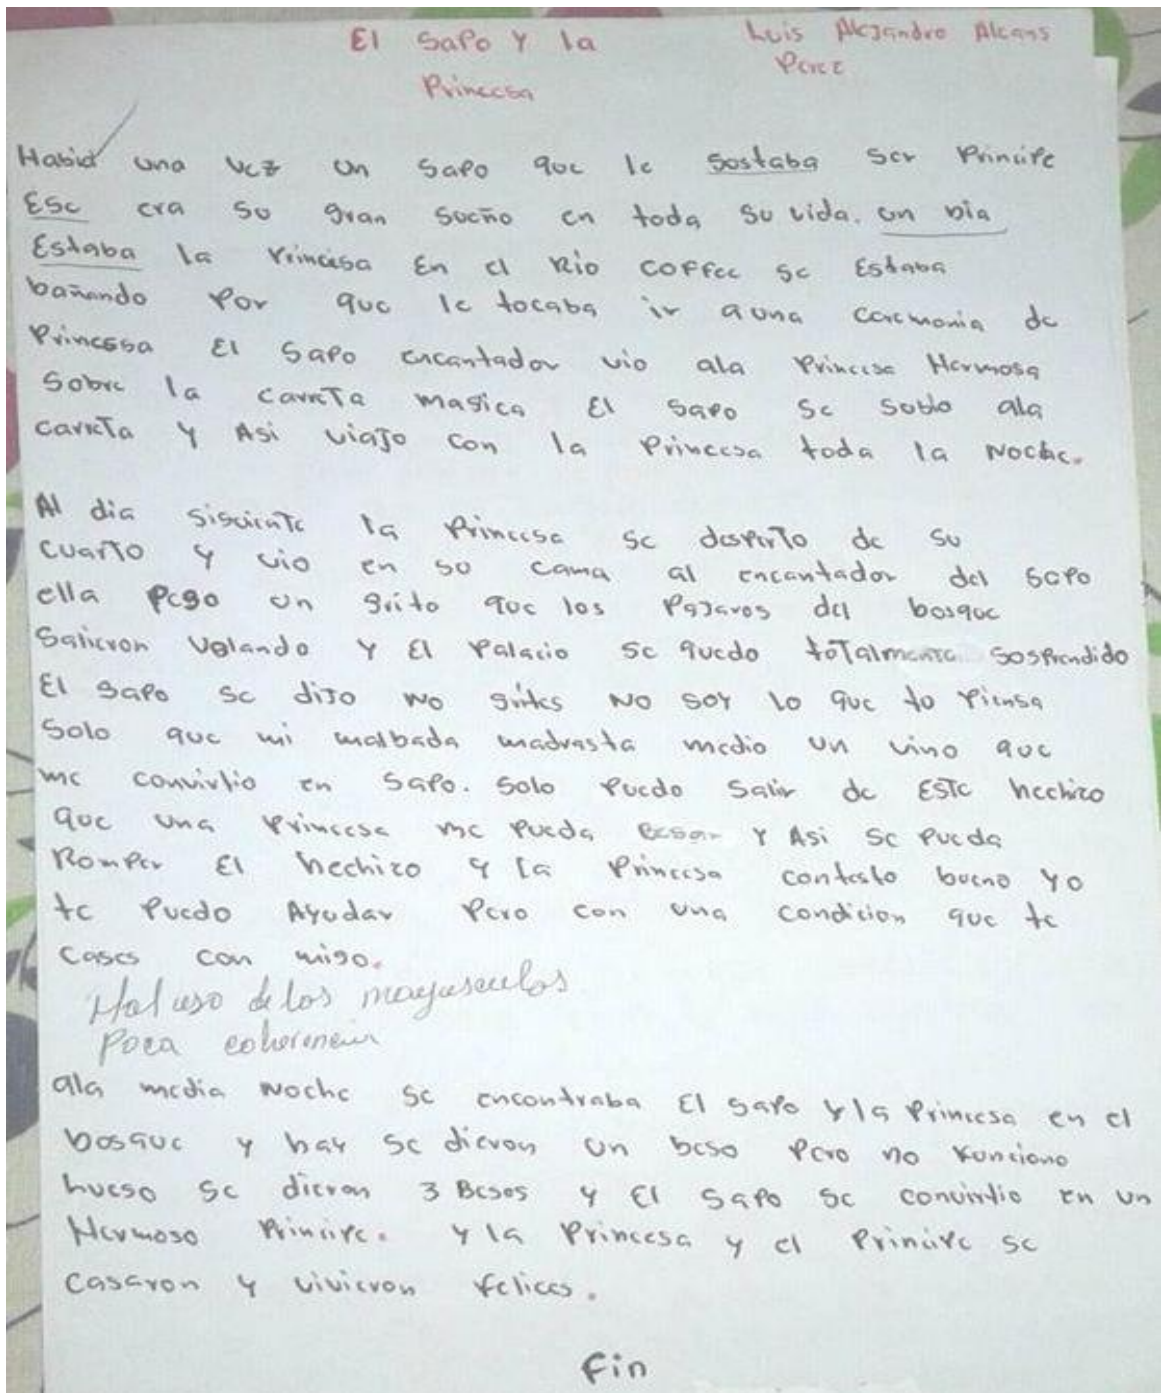 El Sapo Y la
Princesa
Luis Alejandro Alcans
Perez
Habia una vez un Sapo que le gostaba ser Principe
Ese era su gran sueño en toda su vida. un Dia
Estaba la Princesa En el Rio COFFee se Estaba
bañando Por que le tocaba ir a una Ceremonia de
Princessa El Sapo encantador vio ala Princesa Hermosa
Sobre la carreTa magica El Sapo se sobio ala
carreTa Y Asi viaJo con la Princesa toda la Noche.
Al dia siguienTe la Princesa se desperTo de su
cuarTo y vio en su cama al encantador del sopo
ella Pego un grito que los PaJaros del bosque
Salieron Volando Y El Palacio se quedo toTalmente sosprendido
El Sapo se diJo No grites No soy lo que tu Piensa
Solo que mi malbada madrasta medio un vino que
me convirtio en Sapo. Solo Puedo Salir de ESTe hechizo
que una Princesa me Pueda Besar Y Asi se Pueda
Romper El hechizo y la Princesa contesto bueno yo
te Puedo Ayudar Pero con una condicion que te
cases con migo.
Mal uso de los mayusculas
Poca coherencia
ala media Noche se encontraba El Sapo y la Princesa en el
bosque y hay se dieron un beso Pero no Funciono
hueso se dieron 3 Besos y El Sapo se convirtio en un
Hermoso Principe. y la Princesa y el Principe se
casaron y vivieron felices.
Fin